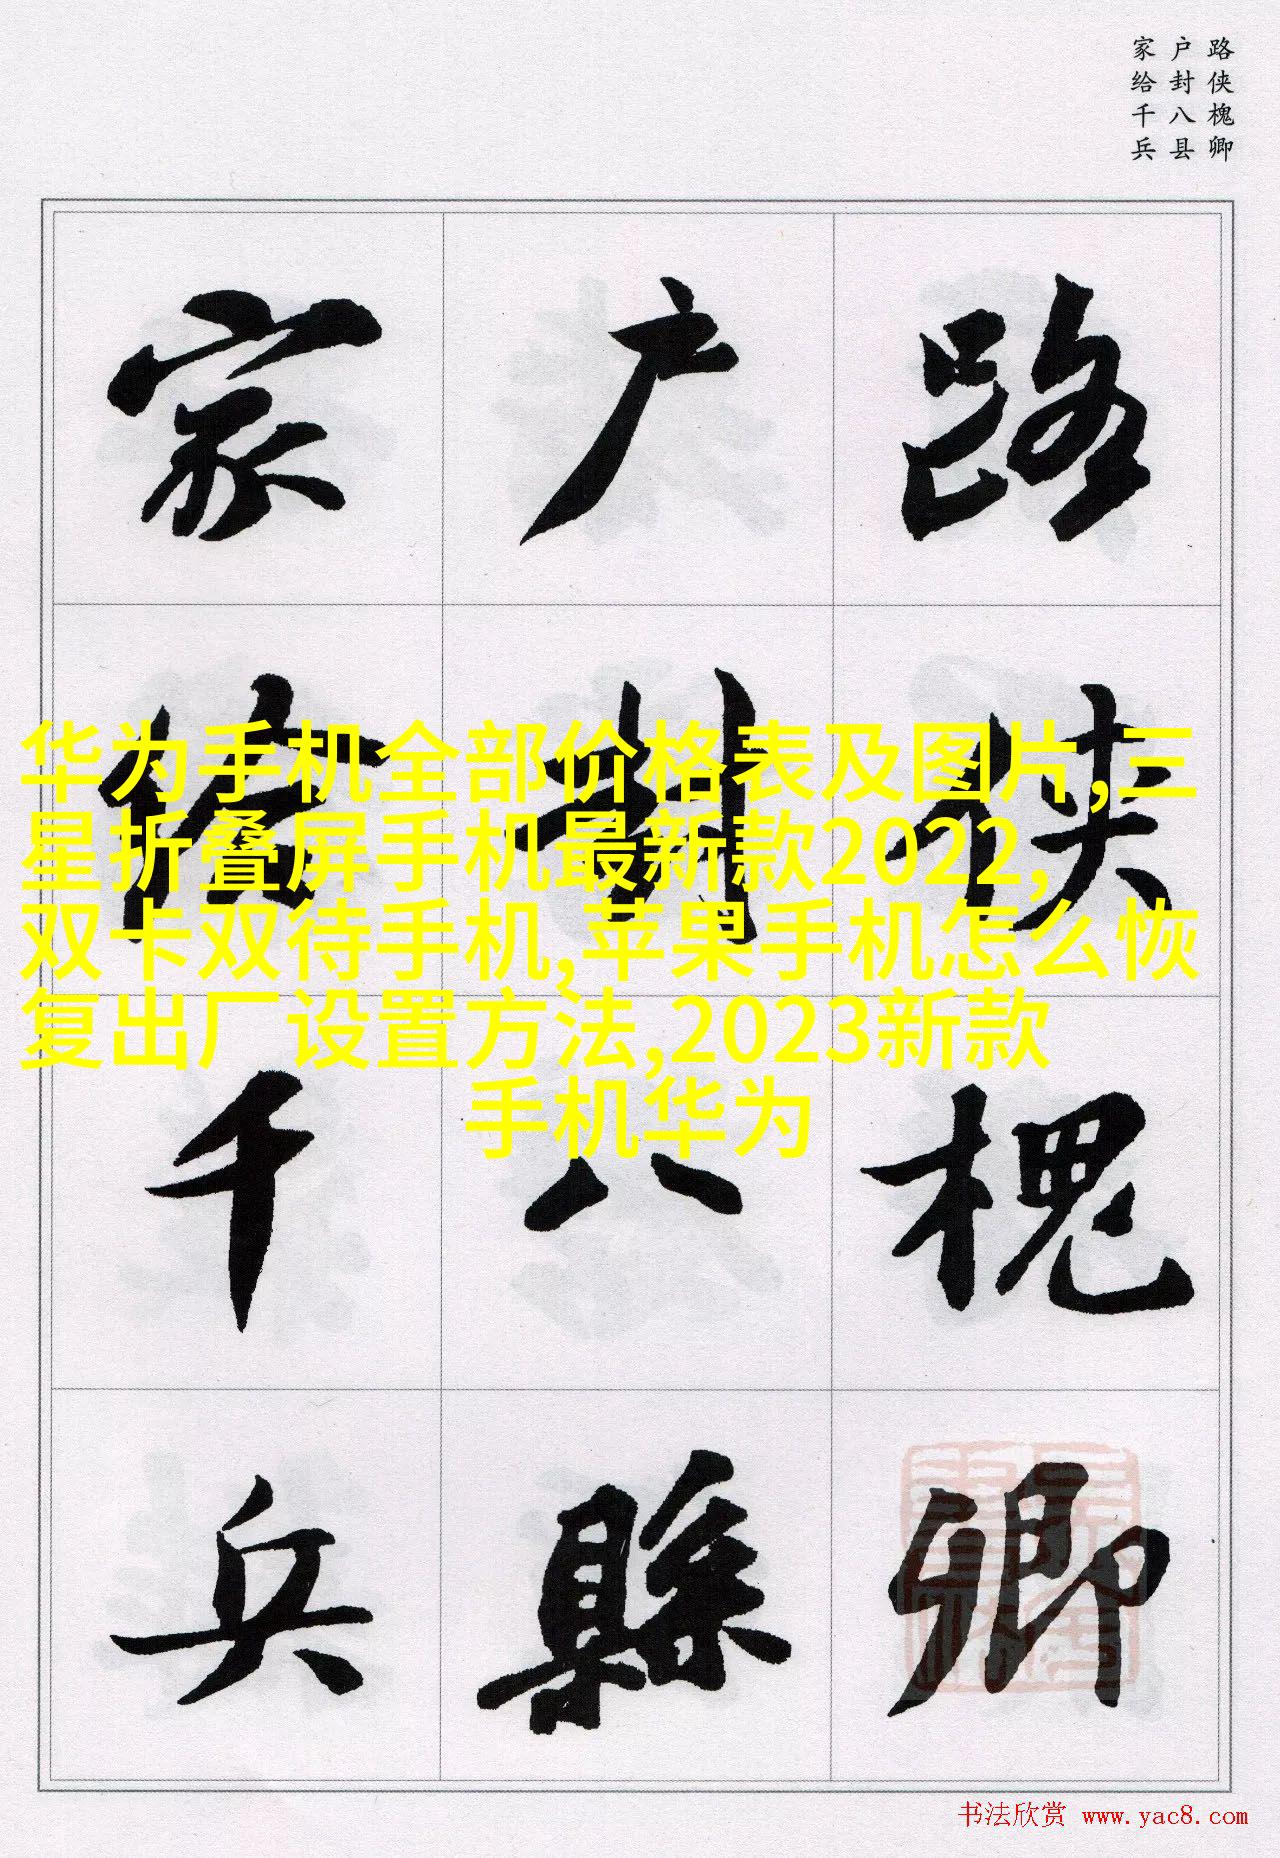 路侠槐卿
户封八县
家给千兵
路侠槐卿
户封八縣
家给千兵
华为手机全部价格表及图片,三
星折叠屏手机最新款2022,
双卡双待手机,苹果手机怎么恢
复出厂设置方法,2023新款
手机华为
书法欣赏 www.yac8.com